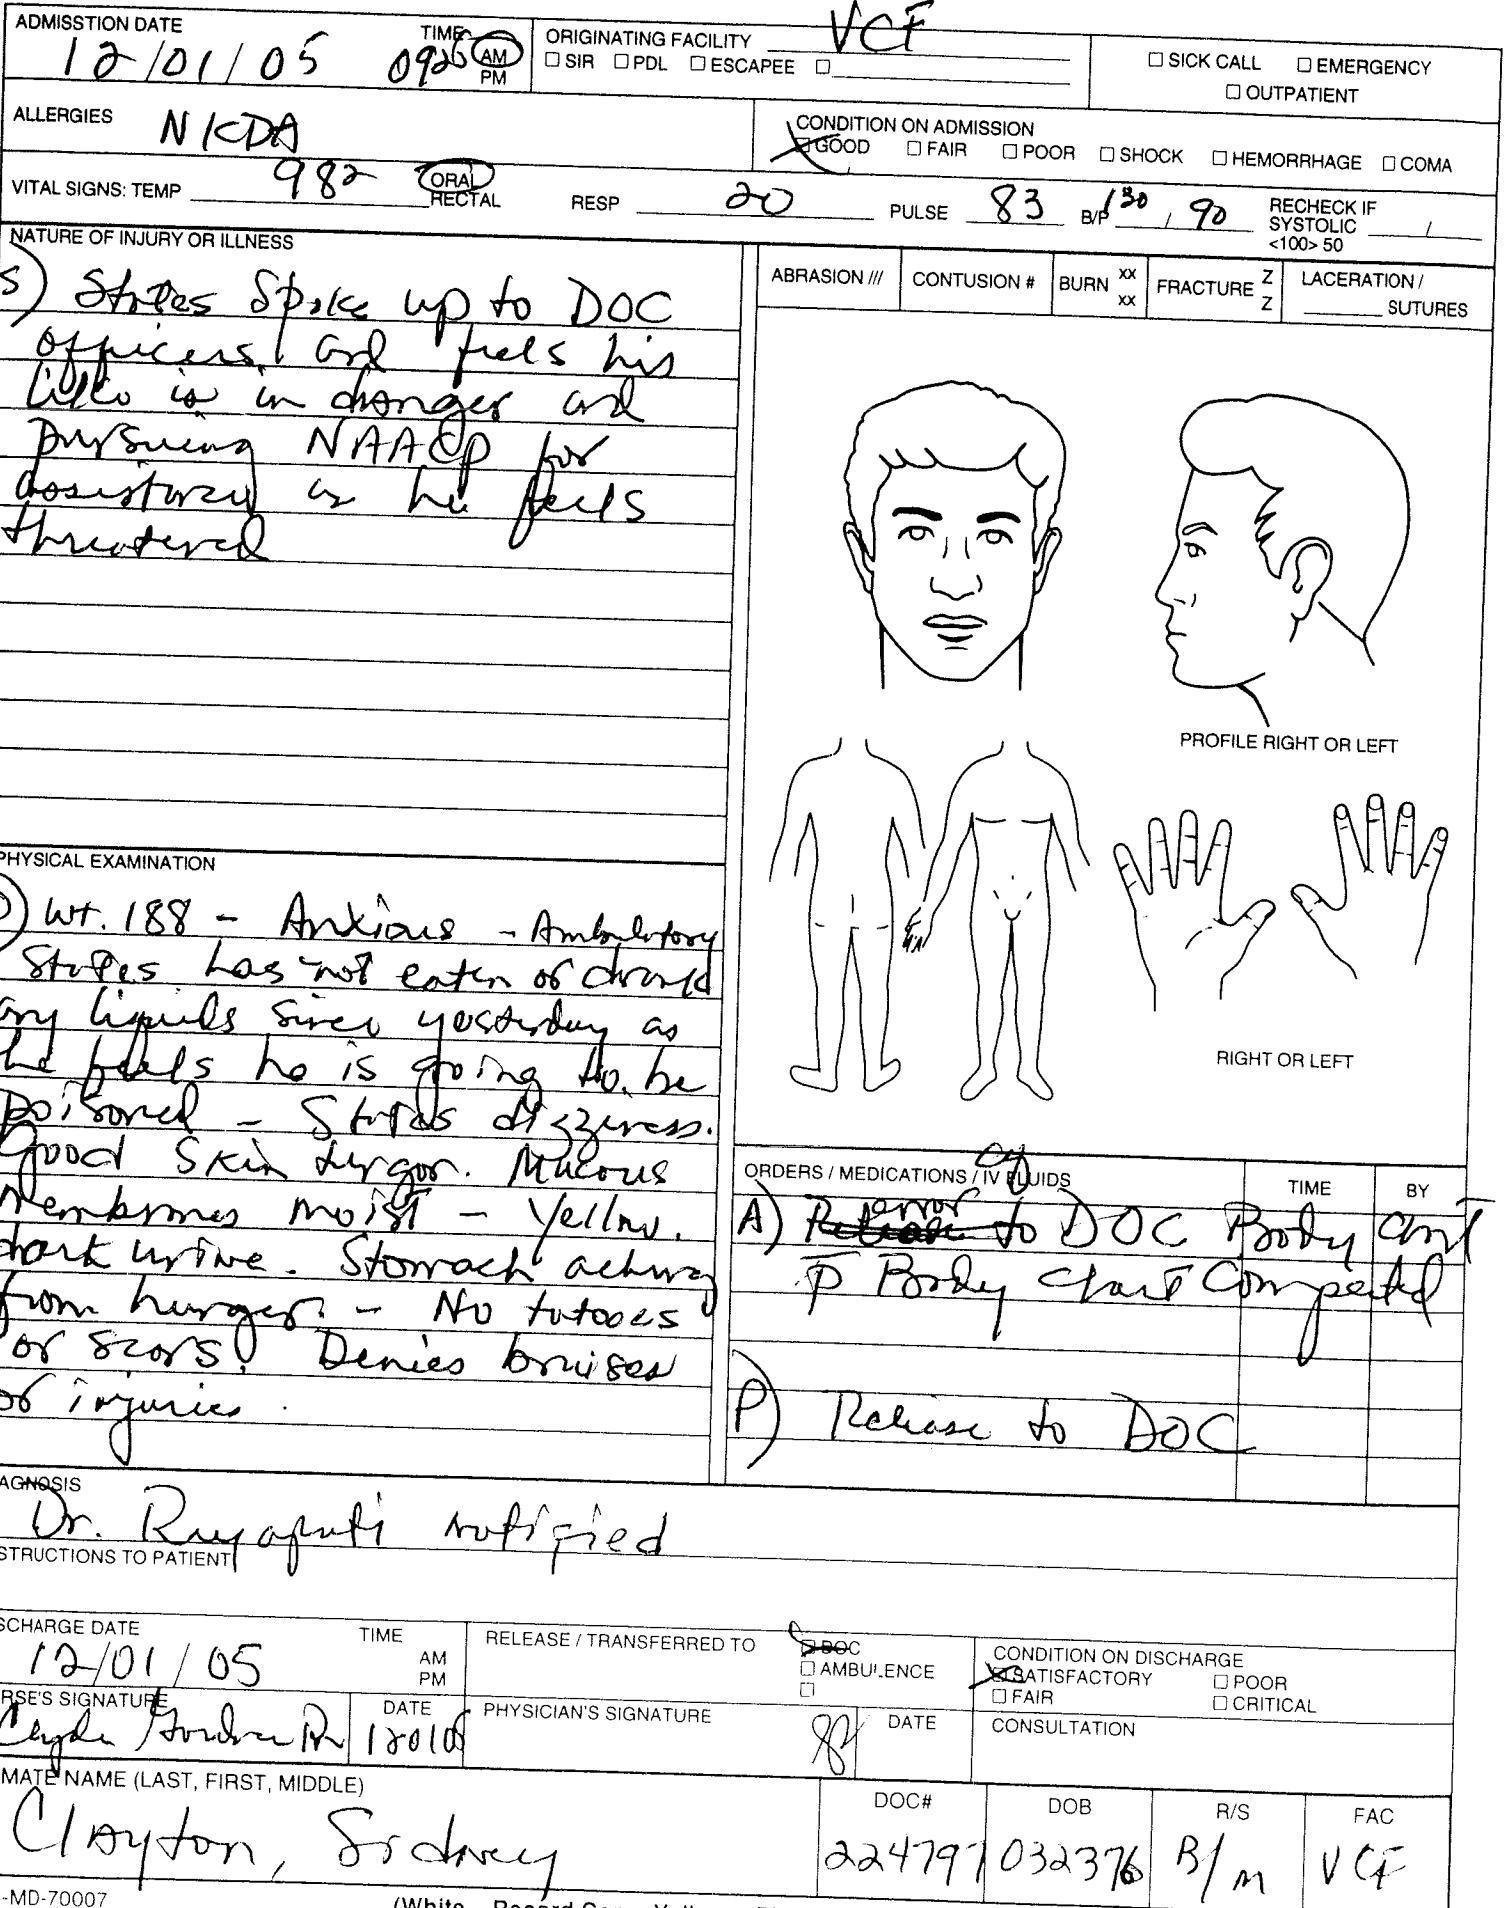 ADMISSTION DATE TIME AM ORIGINATING FACILITY VCF
12/01/05 0925 PM □ SIR □ PDL □ ESCAPEE □ □ SICK CALL □ EMERGENCY
□ OUTPATIENT
ALLERGIES NKDA CONDITION ON ADMISSION
□ GOOD □ FAIR □ POOR □ SHOCK □ HEMORRHAGE □ COMA
VITAL SIGNS: TEMP 982 ORAL RECTAL RESP 20 PULSE 83 B/P 130 / 90 RECHECK IF SYSTOLIC / <100> 50
NATURE OF INJURY OR ILLNESS
S) States Spoke up to DOC
officers and feels his
life is in danger and
pursuing NAACP for
assistance as he feels
threatened
ABRASION /// CONTUSION # BURN xx xx FRACTURE Z Z LACERATION / SUTURES
PROFILE RIGHT OR LEFT
RIGHT OR LEFT
PHYSICAL EXAMINATION
Wt. 188 - Anxious - Ambulatory
States has not eaten or drank
any liquids since yesterday as
he feels he is going to be
poisoned - States dizziness.
Good Skin turgor. Mucous
Membranes moist - Yellow.
dark urine. Stomach aching
from hunger. - No tutooes
or scars. Denies bruises
or injuries.
ORDERS / MEDICATIONS / IV FLUIDS TIME BY
cg
error
A) Release to DOC Body chart
P Body chart Completd
P) Release to DOC
AGNOSIS
Dr. Rayapati notified
STRUCTIONS TO PATIENT
SCHARGE DATE TIME AM PM
12/01/05
RELEASE / TRANSFERRED TO □ DOC
□ AMBULENCE
□
CONDITION ON DISCHARGE
□ SATISFACTORY □ POOR
□ FAIR □ CRITICAL
RSE'S SIGNATURE DATE PHYSICIAN'S SIGNATURE DATE CONSULTATION
RN 120105
MATE NAME (LAST, FIRST, MIDDLE) DOC# DOB R/S FAC
Clayton, Sidney 224797 032376 B/m VCF
-MD-70007